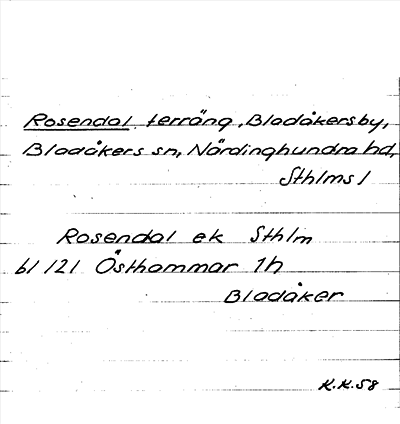 Rosendal, terräng, Bladåkersby,
Bladåkers sn, Närdinghundra hd,
Sthlms l
Rosendal ek Sthlm
bl 121 Östhammar 1h
Bladåker
K.K.58